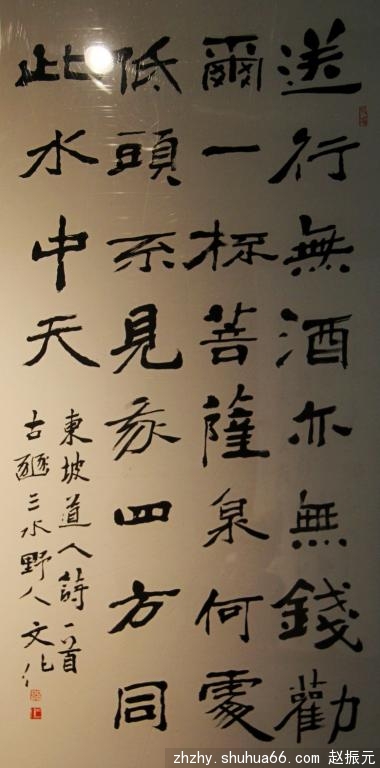 送行無酒亦無錢勸
爾一杯菩薩泉何處
低頭不見我四方同
此水中天
東坡道人詩一首
古三水野人文化
zhzhy.shuhua66.com 赵振元